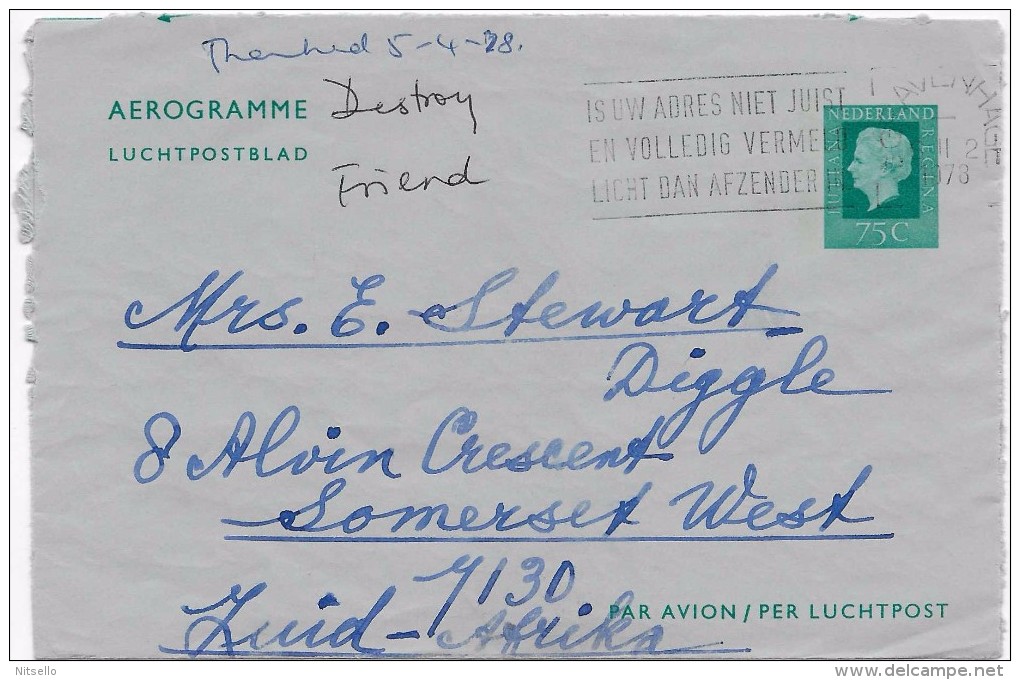 Thanked 5-4-78.
AEROGRAMME
LUCHTPOSTBLAD
Destroy
Friend
IS UW ADRES NIET JUIST
EN VOLLEDIG VERMELD
LICHT DAN AFZENDER IN
NEDERLAND
JULIANA REGINA
75 C
1978
Mrs. E. Stewart
Diggle
8 Alvin Crescent
Somerset West
7130
Zuid-Afrika
PAR AVION / PER LUCHTPOST
Nitsello
www.delcampe.net